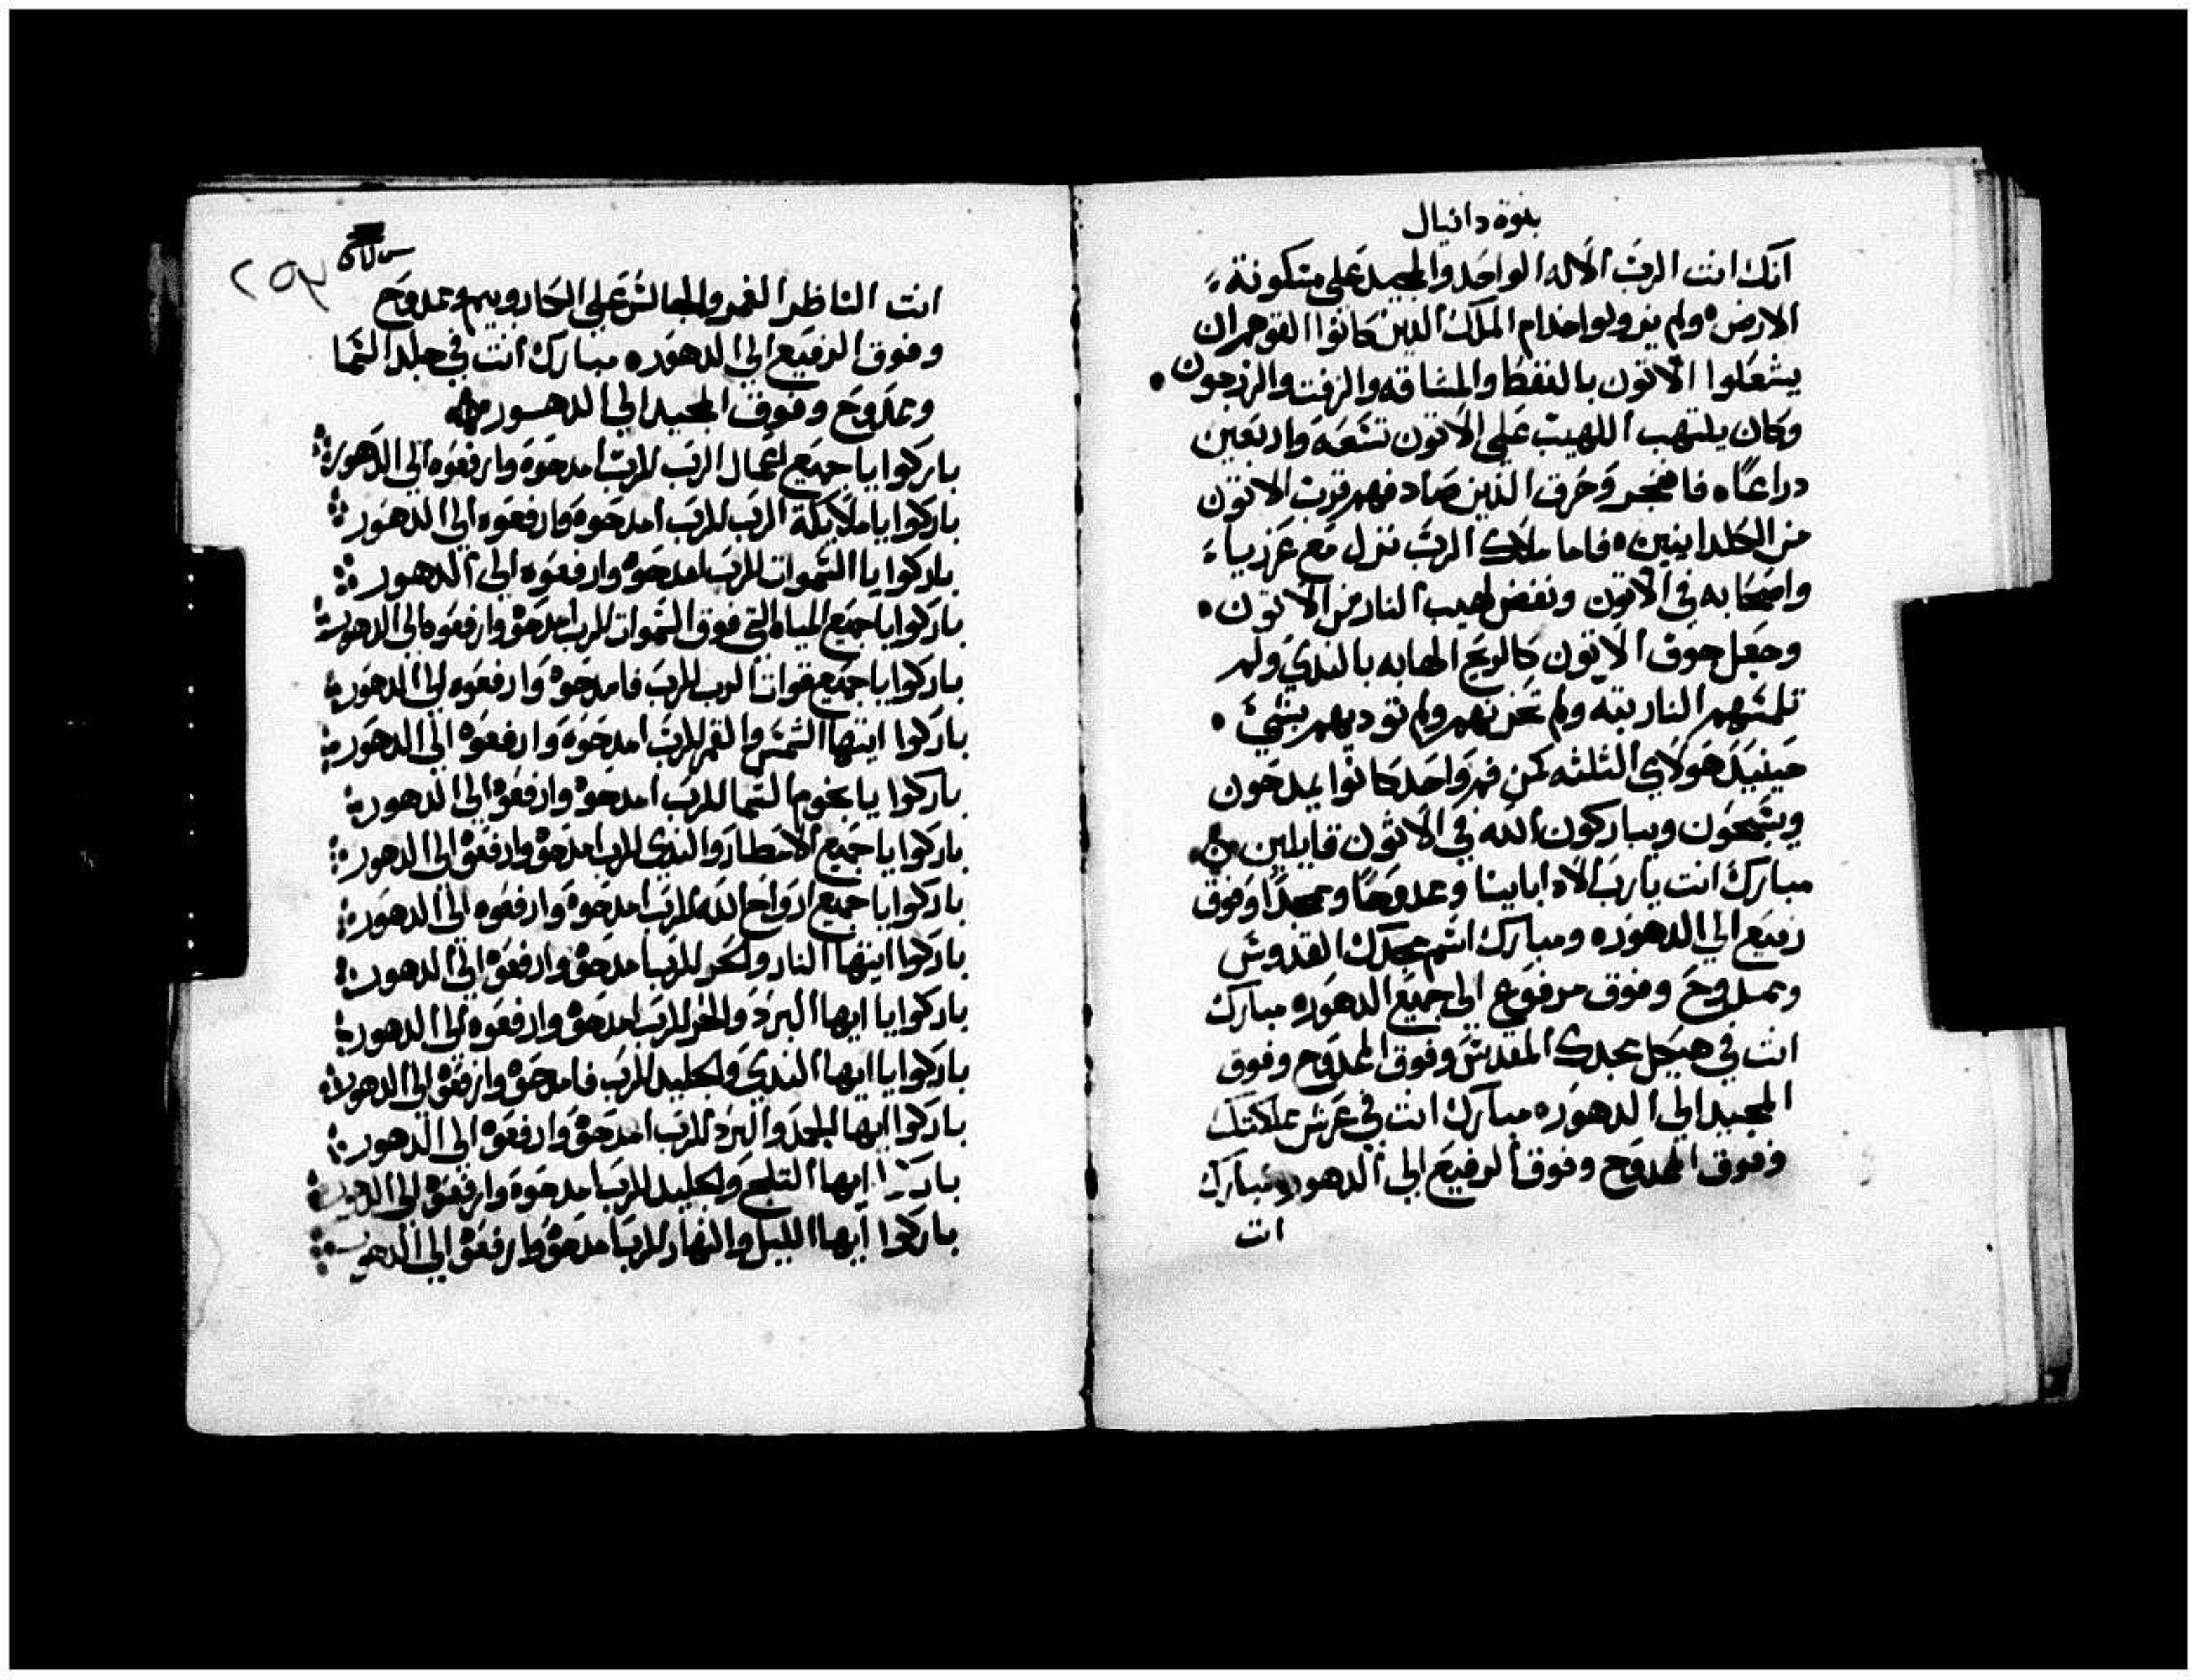 بنوة دانيال
انك انت الرب الاله الواحد والمجيد على متكونة
الارض ولم يزولوا خدام الملك الدين كانوا القوهم ان
يشعلوا الاتون بالنفط والمشاقه والزفت والزرجون
وكان يلتهب اللهيب على الاتون تسعه واربعين
دراعًا فانفجر وحرق الذين صادفهم قرب الاتون
من الكلدانيين فاما ملاك الرب نزل مع عزريا
واصحابه في الاتون ونفض لهيب النار من الاتون
وجعل جوف الاتون كالريح الهابه بالندي ولم
تلمسهم النار بته ولم تحزنهم ولم توديهم بشئ
حينيد هولاي الثلثه كمن فم واحد كانوا يمدحون
ويسبحون ويباركون الله في الاتون قايلين
مبارك انت يا رب الاه ابايينا وممدوحًا وممجدًا وفوق
رفيع الي الدهور ومبارك اسم مجدك القدوس
وممدوح وفوق مرفوع الي جميع الدهور مبارك
انت في هيكل مجدك المقدس وفوق الممدوح وفوق
المجيد الي الدهور مبارك انت في عرش مملكتك
وفوق الممدوح وفوق الرفيع الي الدهور مبارك
انت
٢٥٣
انت الناظر الغمر والجالس على الكاروبيم وممدوح
وفوق الرفيع الي الدهور مبارك انت في جلد السما
وممدوح وفوق المجيد الي الدهور
باركوا يا جميع اعمال الرب للرب امدحوه وارفعوه الي الدهور
باركوا يا ملايكة الرب للرب امدحوه وارفعوه الي الدهور
باركوا يا السموات للرب امدحوه وارفعوه الي الدهور
باركوا يا جميع المياه التي فوق السموات للرب امدحوه وارفعوه الي الدهور
باركوا يا جميع قوات الرب للرب فامدحوه وارفعوه الي الدهور
باركوا ايتها الشمس والقمر للرب امدحوه وارفعوه الي الدهور
باركوا يا نجوم السما للرب امدحوه وارفعوه الي الدهور
باركوا يا جميع الامطار والندي للرب امدحوه وارفعوه الي الدهور
باركوا يا جميع ارواح الله للرب امدحوه وارفعوه الي الدهور
باركوا ايتها النار والحر للرب امدحوه وارفعوه الي الدهور
باركوا يا ايها البرد والحر للرب امدحوه وارفعوه الي الدهور
باركوا يا ايها الندي والجليد للرب فامدحوه وارفعوه الي الدهور
باركوا ايها الجمد والبرد للرب امدحوه وارفعوه الي الدهور
باركوا ايها التلج والجليد للرب امدحوه وارفعوه الي الدهور
باركوا ايها الليل والنهار للرب امدحوه وارفعوه الي الدهور